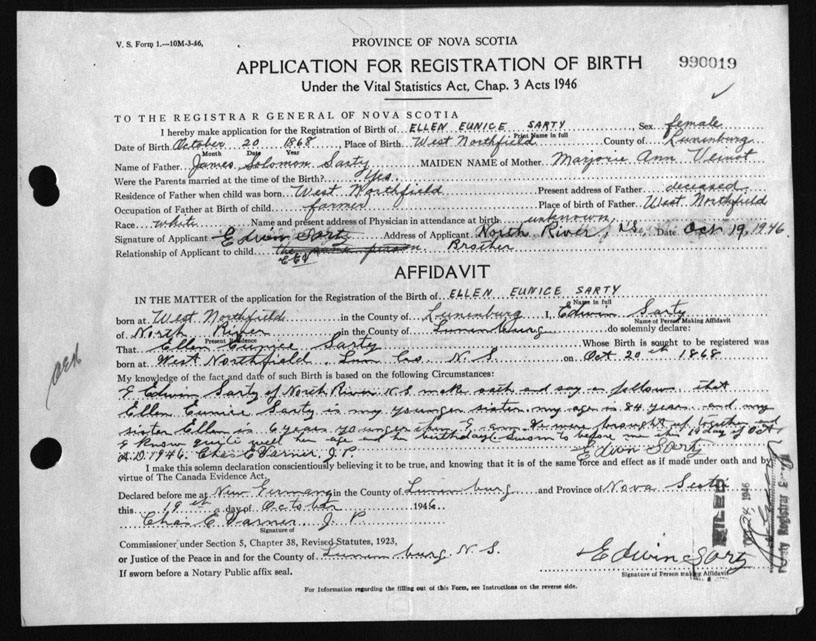 V. S. Form 1.—10M-3-46.
PROVINCE OF NOVA SCOTIA
APPLICATION FOR REGISTRATION OF BIRTH
990019
Under the Vital Statistics Act, Chap. 3 Acts 1946
TO THE REGISTRAR GENERAL OF NOVA SCOTIA
I hereby make application for the Registration of Birth of ELLEN EUNICE SARTY Sex female
Print Name in full
Date of Birth October 20 1868 Place of Birth West Northfield County of Lunenburg
Month Date Year
Name of Father James Solomon Sarty MAIDEN NAME of Mother Marjorie Ann Veinot
Were the Parents married at the time of the Birth? Yes
Residence of Father when child was born West Northfield Present address of Father deceased
Occupation of Father at Birth of child farmer Place of birth of Father West Northfield
Race white Name and present address of Physician in attendance at birth unknown
Signature of Applicant Edwin Sarty Address of Applicant North River, N.S. Date Oct 19, 1946
Relationship of Applicant to child the same person Brother
AFFIDAVIT
IN THE MATTER of the application for the Registration of Birth of ELLEN EUNICE SARTY
Name in full
born at West Northfield in the County of Lunenburg I, Edwin Sarty
Name of Person Making Affidavit
of North River in the County of Lunenburg do solemnly declare:
Present Residence
That Ellen Eunice Sarty Whose Birth is sought to be registered was
born at West Northfield Lun Co. N.S. on Oct 20th 1868
My knowledge of the fact and date of such Birth is based on the following Circumstances:
I Edwin Sarty of North River N S make oath and say as follows that
Ellen Eunice Sarty is my younger sister. my age is 84 years and my
sister Ellen is 6 years younger than I am. We were brought up together and
I know quite well her age and her birthday. Sworn to before me this 19 day of Oct
A.D. 1946. Chas E Varner J.P. Edwin Sarty
I make this solemn declaration conscientiously believing it to be true, and knowing that it is of the same force and effect as if made under oath and by
virtue of The Canada Evidence Act.
Declared before me at New Germany in the County of Lunenburg and Province of Nova Scotia
this 19th day of October 1946
Chas E Varner J. P.
Signature of
Commissioner under Section 5, Chapter 38, Revised Statutes, 1923,
or Justice of the Peace in and for the County of Lunenburg N. S.
If sworn before a Notary Public affix seal.
Edwin Sarty
Signature of Person making Affidavit
FILED
1946
For Information regarding the filling out of this Form, see Instructions on the reverse side.